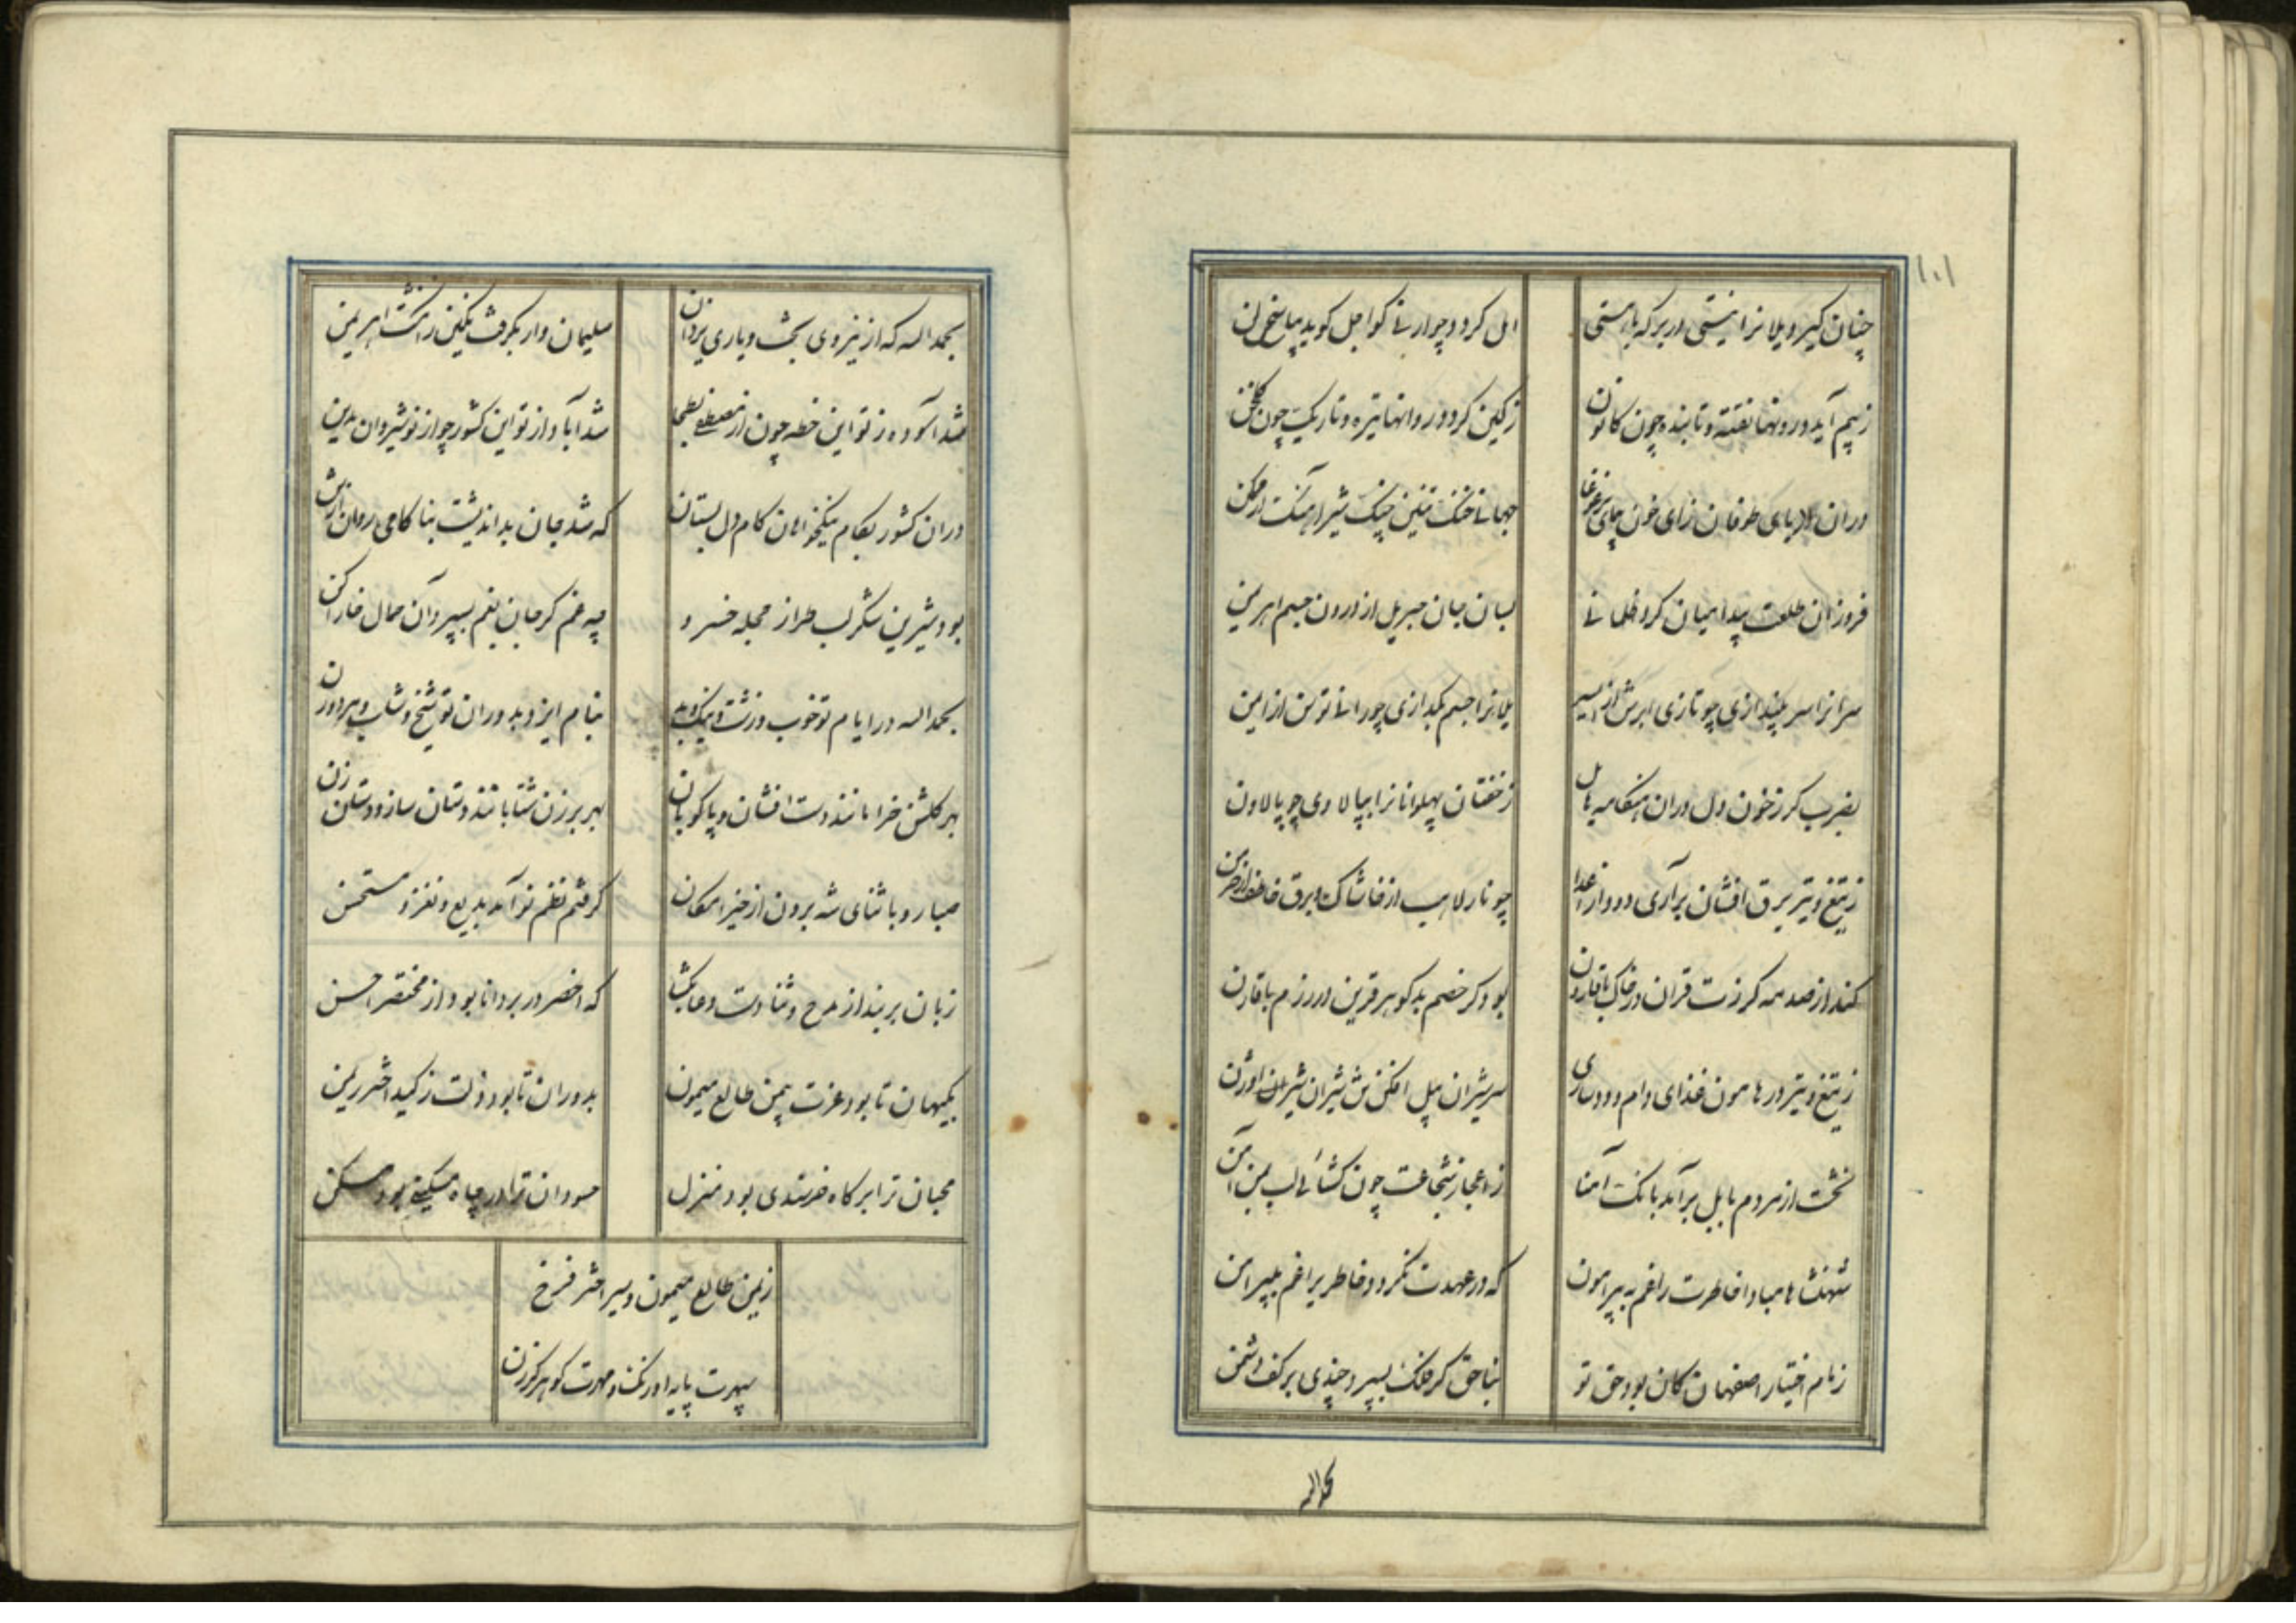 ۱۰۱
چنان گیرد یلانرا نیستی در بر که با هستی
ارنی کردد چو ارنی گو اجل گوید بپاسخ لن
ز بیم آید درونها تفته و تابنده چون کانون
ز کین گردد روانها تیره و تاریک چون گلخن
در ان دریای طوفان زای خون
جهانی خنک تنین چنک شیر اهنک
فروزان طلعتت پیدا میان گرد ظلمانی
بسان جان جبریل از درون جسم اهریمن
سرانرا سر بیندازی چو تازی ابرش از ایسر
یلانرا جسم بگدازی چو رانی توسن از ایمن
بضرب گرز خون دل در ان هنگامه هایل
ز خفتان پهلوانانرا بپالا وی چو پالاون
ز تیغ و تیر برق افشان برآری دود از اعدا
چو نار لاهب از خاشاک و برق خاطف از خرمن
کند از صدمه گرزت قران در خاک با قارون
بود گر خصم بدگوهر قرین در رزم با قارن
ز تیغ و تیر در هامون غذای دام و دد سازی
سر شیران پیل افکن تن شیران شیر اوژن
نخست از مردم بابل برآید بانک آمنا
ز اعجاز شجاعت چون گشائی لب بمن آمن
شهنشاها مبادا خاطرت را غم به پیرامون
که در عهدت نگردد خاطریرا غم بپیرامن
زمام اختیار اصفهان کان بود حق تو
بناحق گر فلک بسپرد چندی بر کف دشمن
بحمدالله
بحمدالله که از نیروی بخت و یاری یزدان
سلیمان وار بگرفتی نگین ز انگشت اهریمن
شد آسوده ز تو این خطه چون از مصطفی بطحا
شد آباد از تو این کشور چو از نوشیروان مدین
در ان کشور بکام نیکخواهان کام دل بستان
که شد جان بد اندیشت بناکامی روان از تن
بود شیرین شکر لب طراز حجله خسرو
چه غم گر جان بغم بسپرد آن حمال خاراکن
بحمدالله در ایام تو خوب و زشت و نیک و بد
بنام ایزد بدوران تو شیخ و شاب و مرد و زن
بهر گلشن خرامانند دست افشان و پا کوبان
بهر برزن شتابانند دستان ساز و دستان زن
صبا رو با ثنای شه برون از حیز امکان
گرفتم نظم تو آمد بدیع و نغز و مستحسن
زبان بربند از مدح و ثنا دست دعا بگشا
که اخصر در بر دانا بود از مختصر احسن
بکیهان تا بود عزت بیمن طالع میمون
بدوران تا بود ذلت ز کید اختر ریمن
محبان ترا بر گاه خرسندی بود منزل
حسودان ترا در چاه مسکینی بود مسکن
ز یمن طالع میمون و سیر اختر فرخ
سپهرت پایه اورنک و مهرت گوهر گرزن